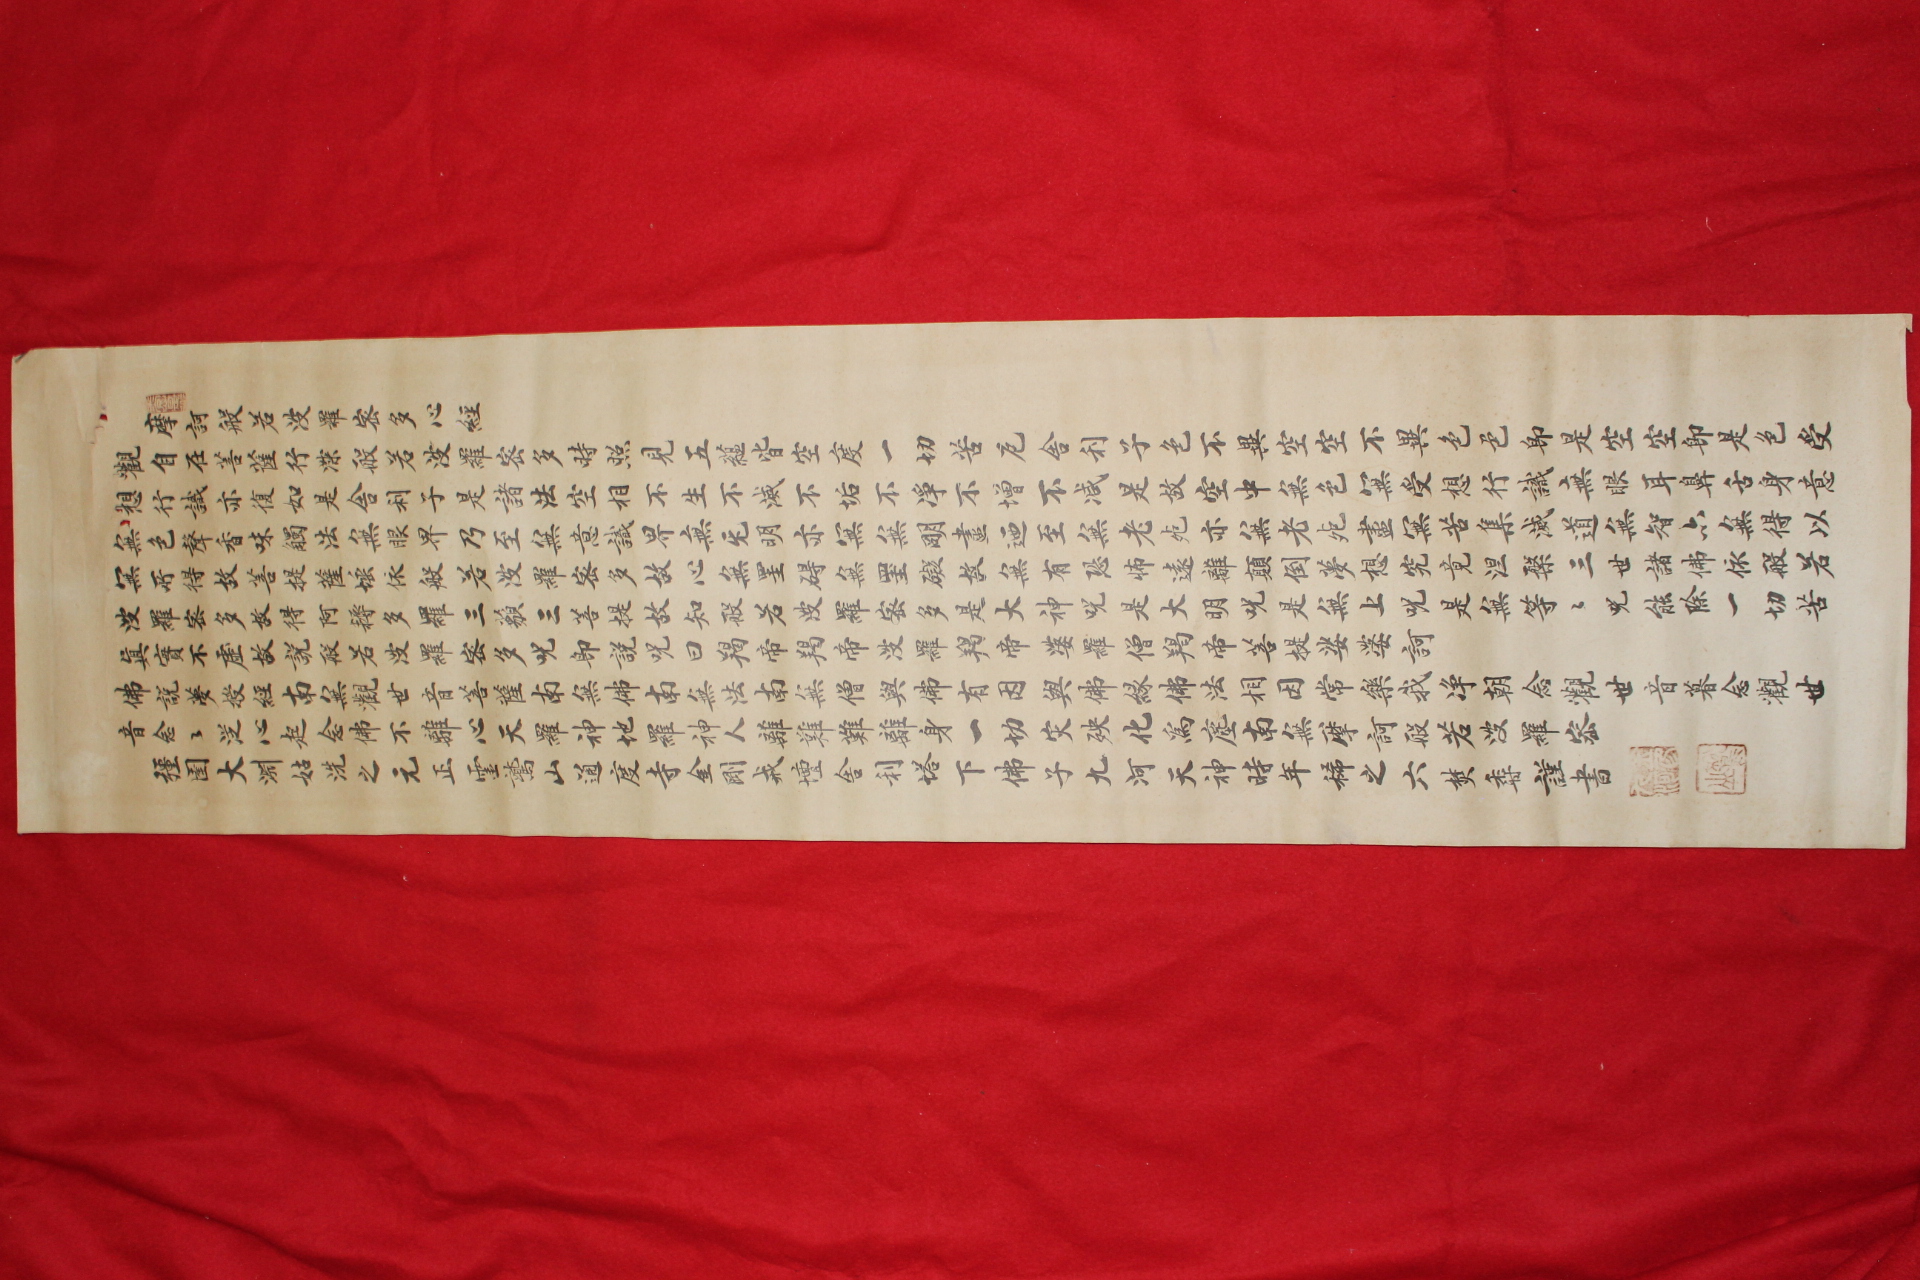 摩訶般若波羅密多心經
觀自在菩薩行深般若波羅密多時照見五蘊皆空度一切苦厄舍利子色不異空空不異色色即是空空即是色受
想行識亦復如是舍利子是諸法空相不生不滅不垢不淨不增不減是故空中無色無受想行識無眼耳鼻舌身意
無色聲香味觸法無眼界乃至無意識界無无明亦無無明盡廼至無老死亦無老死盡無苦集滅道無智亦無得以
無所得故菩提薩埵依般若波羅密多故心無罣碍無罣碍故無有恐怖遠離顛倒夢想究竟涅槃三世諸佛依般若
波羅密多故得阿耨多羅三藐三菩提故知般若波羅密多是大神呪是大明呪是無上呪是無等ミ呪能除一切苦
真實不虛故說般若波羅密多呪即說呪曰羯帝羯帝波羅羯帝婆羅僧羯帝菩提娑婆訶
佛說夢授經南無觀世音菩薩南無佛南無法南無僧與佛有因與佛緣佛法相因常樂我淨朝念觀世音暮念觀世
音念ミ從心起念佛不離心天羅神地羅神人離難難離身一切災殃化為塵南無摩訶般若波羅密
彊圉大淵姑洗之元正靈鷲山通度寺金剛戒壇舍利塔下佛子九河天神時年稀之六焚香謹書